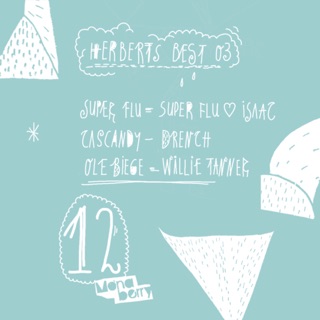 HERBERTS BEST 03
SUPER FLU = SUPER FLU ♡ iSAAC
CASCANDY - BRENCH
OLE BIEGE = WILLIE TANNER
12
Mona
berry